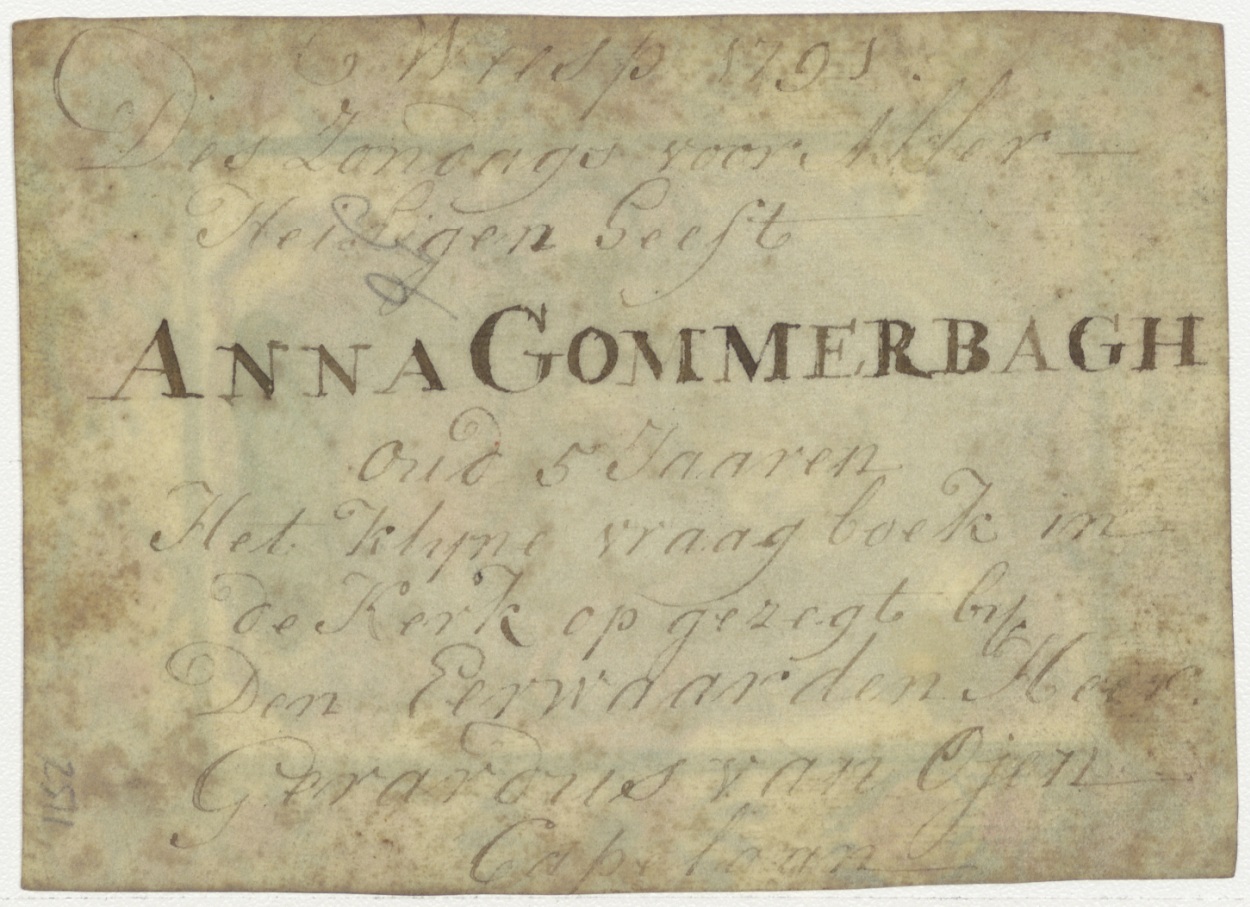 Weesp 1791.
Des Zondags voor Aller —
Heiligen Feest
ANNA GOMMERBAGH
oud 5 Jaaren
Het klyne vraag boek in
de Kerk op gezegt by
Den Eerwaarden Heer.
Gerardus van Ojen
Capelaan
1152